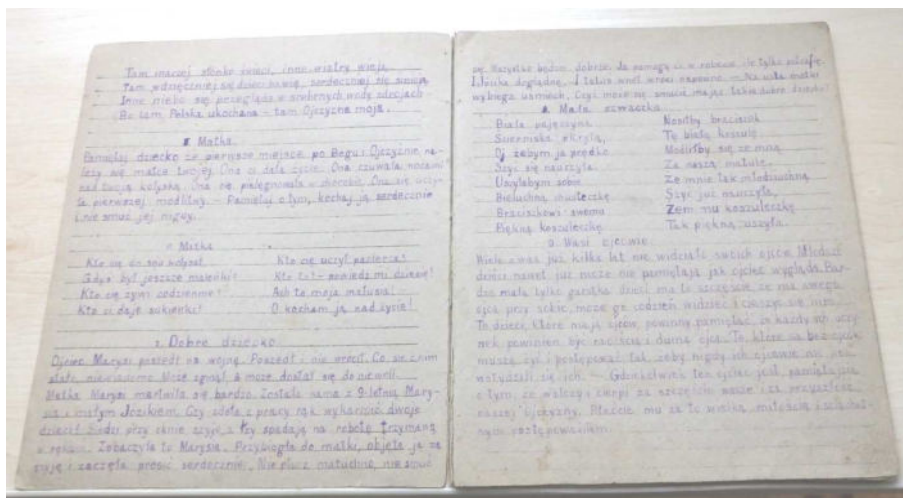 Tam inaczej słonko świeci, inne wiatry wieją
Tam wdzięczniej się dzieci bawią, serdeczniej się śmieją
Inne niebo się przegląda w srebrnych wody zdrojach
Bo tam Polska ukochana - tam Ojczyzna moja.
Matka.
Pamiętaj dziecko że pierwsze miejsce po Bogu i Ojczyźnie na-
leży się matce twojej. Ona ci dała życie. Ona czuwała nocami
nad twoją kołyską. Ona cię pielęgnowała w chorobie. Ona cię uczy-
ła pierwszej modlitwy. - Pamiętaj o tym, kochaj ją serdecznie
i nie smuć jej nigdy.
Matka
Kto cię do snu kołysał
Gdyś był jeszcze maleńki?
Kto cię żywi codziennie?
Kto ci daje sukienki?
Kto cię uczył pacierza?
Kto to? - powiedz mi dziecię!
Ach to moja matusia!
O kocham ją nad życie!
Dobre dziecko
Ojciec Marysi poszedł na wojnę. Poszedł i nie wrócił. Co się z nim
stało, niewiadomo. Może zginął, a może dostał się do niewoli.
Matka Marysi martwiła się bardzo. Została sama z 9-letnią Mary-
sią i małym Józikiem. Czy zdoła z pracy rąk wykarmić dwoje
dzieci? Siedzi przy oknie szyje, a łzy spadają na robotę trzymaną
w rękach. Zobaczyła to Marysia. Przybiegła do matki, objęła ją za
szyję i zaczęła prosić serdecznie. Nie płacz matuchno, nie smuć
się. Wszystko będzie dobrze. Ja pomogę ci w robocie, ile tylko potrafię.
I Józika doglądnę. I tatuś wnet wróci napewno. - Na usta matki
wybiega uśmiech. Czyż może się smucić mając takie dobre dziecko?
8. Mała szwaczka
Biała pajęczyna
Oj żebym ja prędko
Szyć się nauczyła.
Uszyłabym sobie
Bieluchną chusteczkę
Braciszkowi swemu
Piękną koszuleczkę
Nosiłby braciszek
Tę białą koszulę
Modliłby się ze mną
Za naszą matulę.
Że mnie tak młodziuchną
Szyć już nauczyła,
Żem mu koszuleczkę
Tak piękną uszyła.
9. Wasi ojcowie
Wiele z was już kilka lat nie widziało swoich ojców. Młodsze
dzieci nawet już może nie pamiętają jak ojciec wygląda. Bar-
dzo mała tylko garstka dzieci ma to szczęście, że ma swego
ojca przy sobie, może go codzień widzieć i cieszyć się nim.
Te dzieci, które mają ojców, powinny pamiętać, że każdy ich uczy-
nek powinien być radością i dumą ojca. Te, które są bez ojców,
muszą żyć i postępować tak, żeby nigdy ich ojcowie nie
wstydzili się ich. - Gdziekolwiek ten ojciec jest, pamiętajcie
o tym, że walczy i cierpi za szczęście wasze i za przyszłość
naszej ojczyzny. Płaćcie mu za to wielką miłością i
postępowaniem.